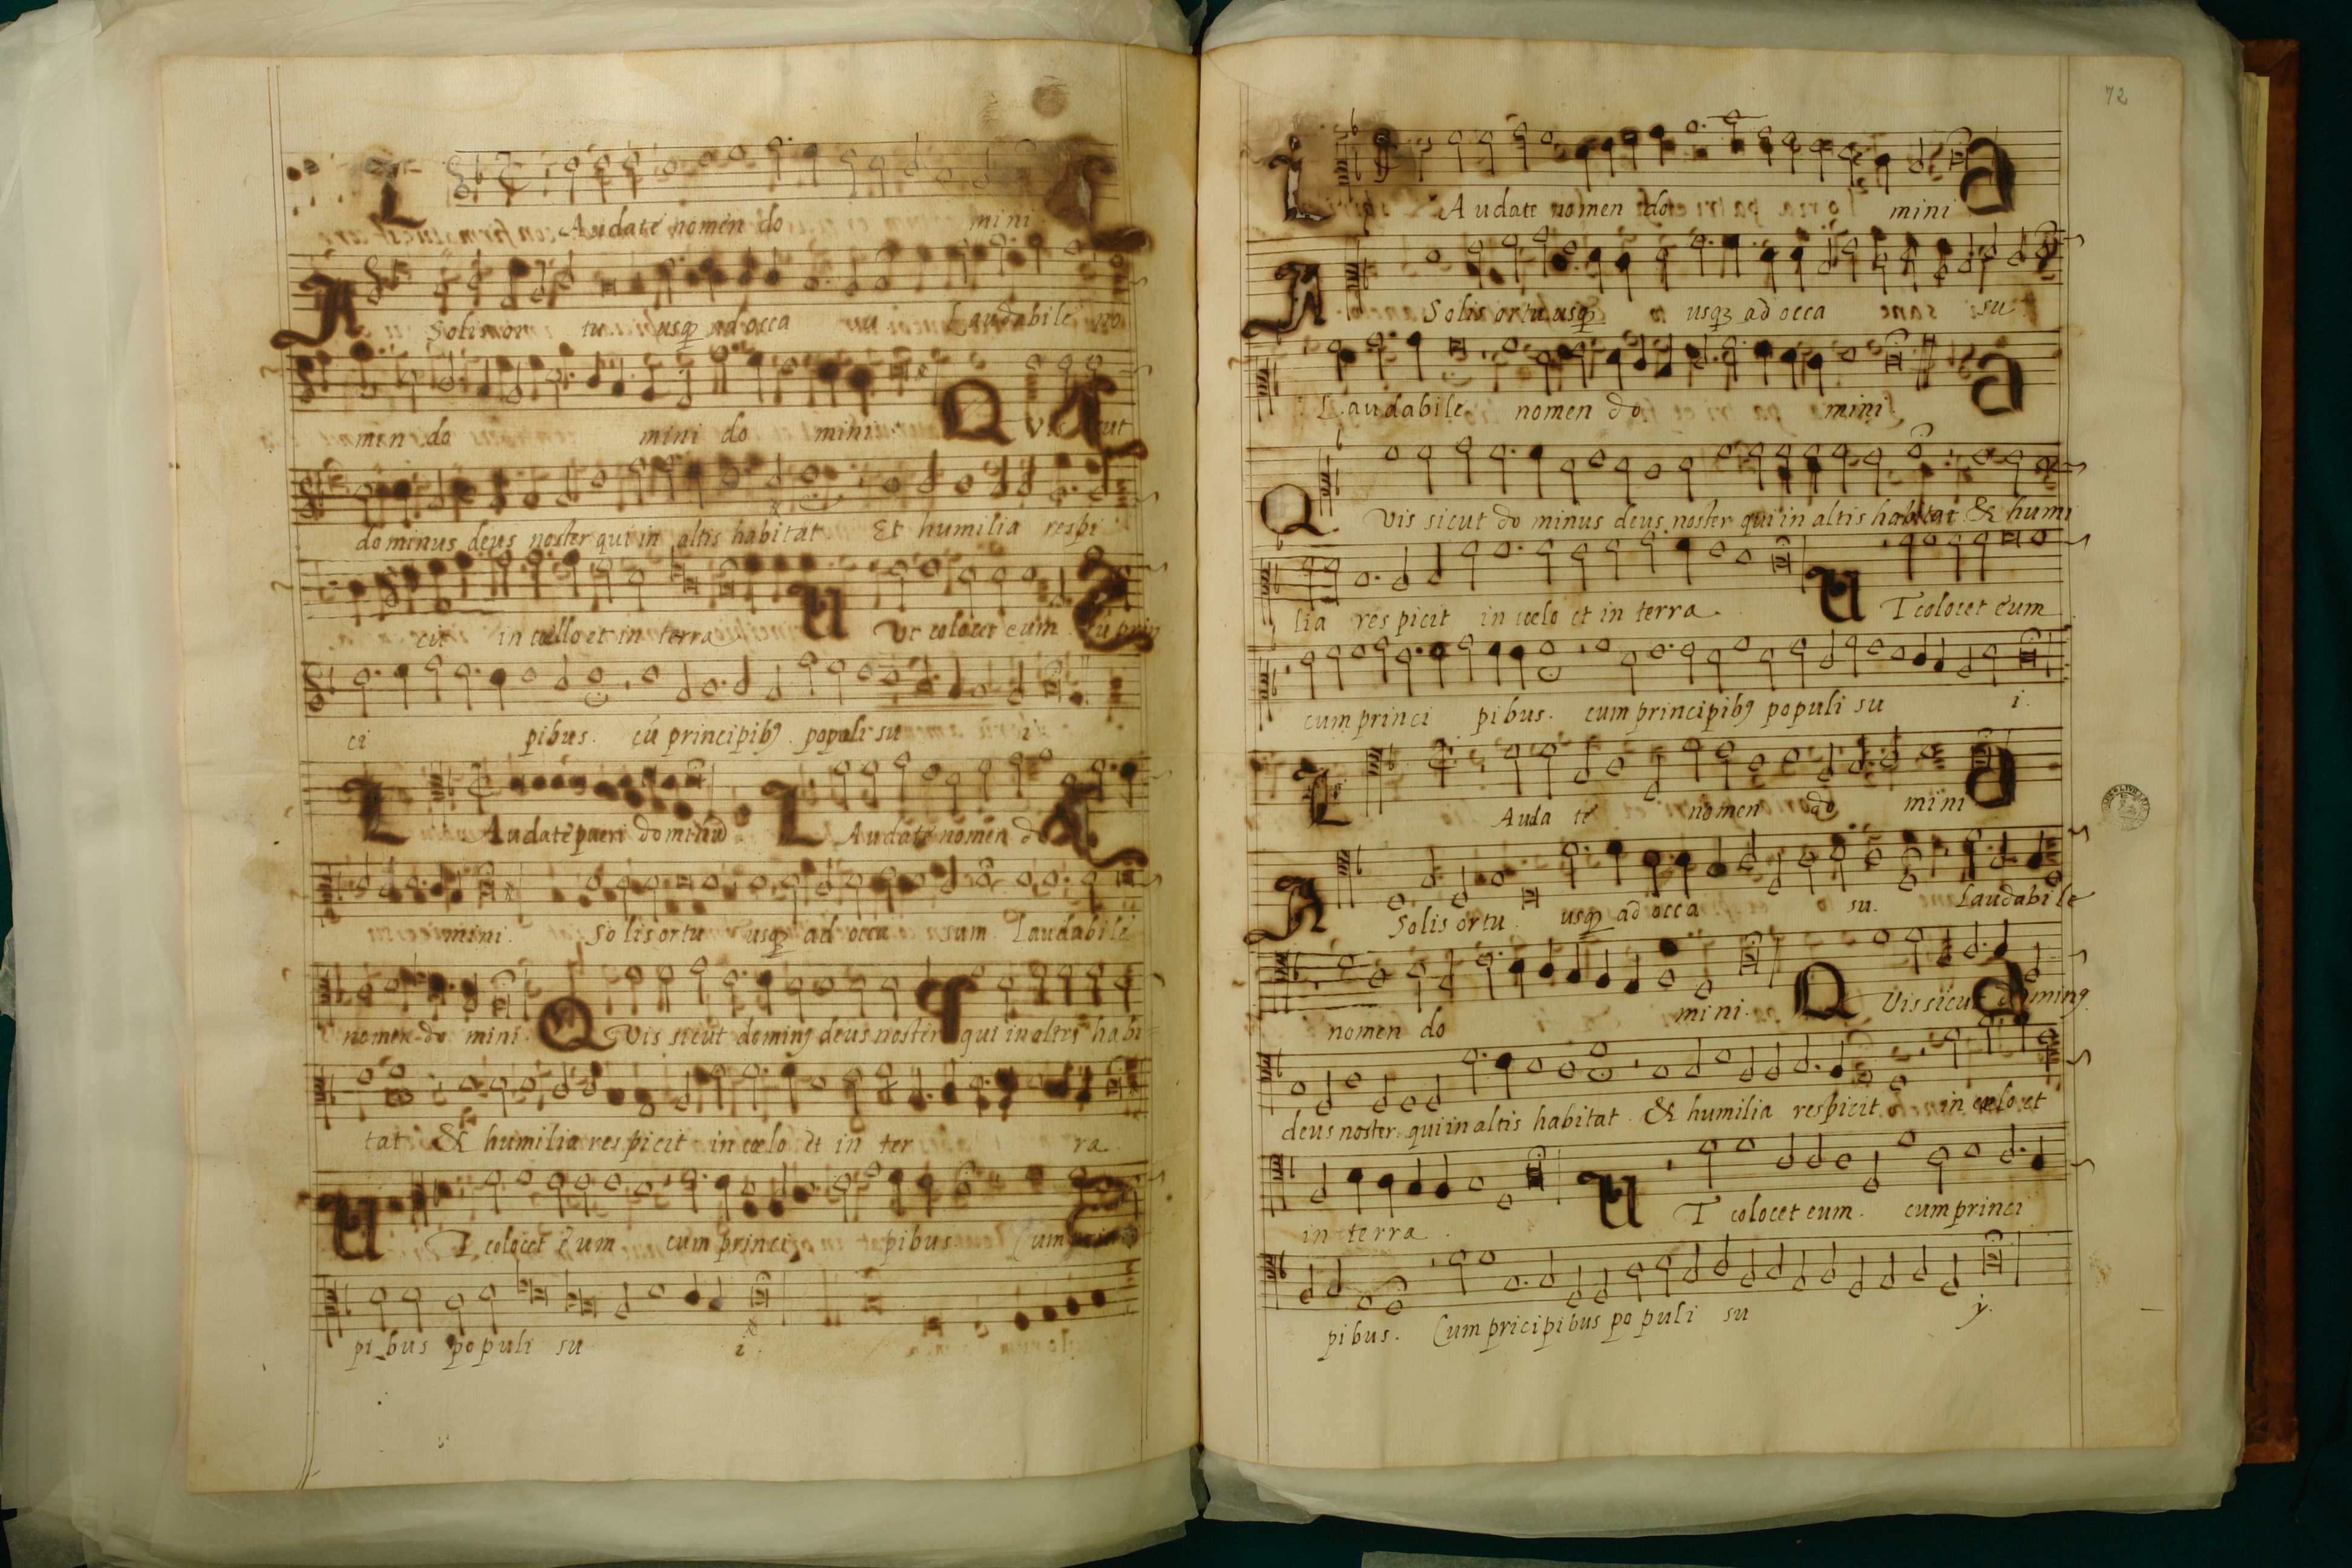 L Audate nomen do mini
A Solis or tu usq ad occa su Laudabile no
men do mini do mini Q Vis sicut
dominus deus noster qui in altis habitat Et humilia respi
cit in cœllo et in terra U Ut colocet eum Cũ prin
ci pibus. cũ principib9 populi su i
L Audate pueri dominũ L Audate nomen do
mini. So lis ortu usq ad occa sum Laudabile
nomen do mini. Q Vis sicut domin9 deus noster qui in altis habi
tat & humilia res picit in cœlo et in ter ra
U T colocet eum cum princi pibus Cum princi
pi bus populi su i.
72
L Audate nomen do mini
A Solis ortu usq usqz ad occa su
Laudabile nomen do mini
Q Vis sicut do minus deus noster qui in altis habitat & humi
lia res picit in cœlo et in terra U T colocet eum
cum princi pibus. cum principib9 populi su i.
L Auda te nomen do mini
A Solis ortu usq ad occa su. Laudabile
nomen do mini. Q Vis sicut domin9
deus noster qui in altis habitat & humilia respicit in cœlo et
in terra U T colocet eum. cum princi
pibus. Cum pricipibus po puli su y.